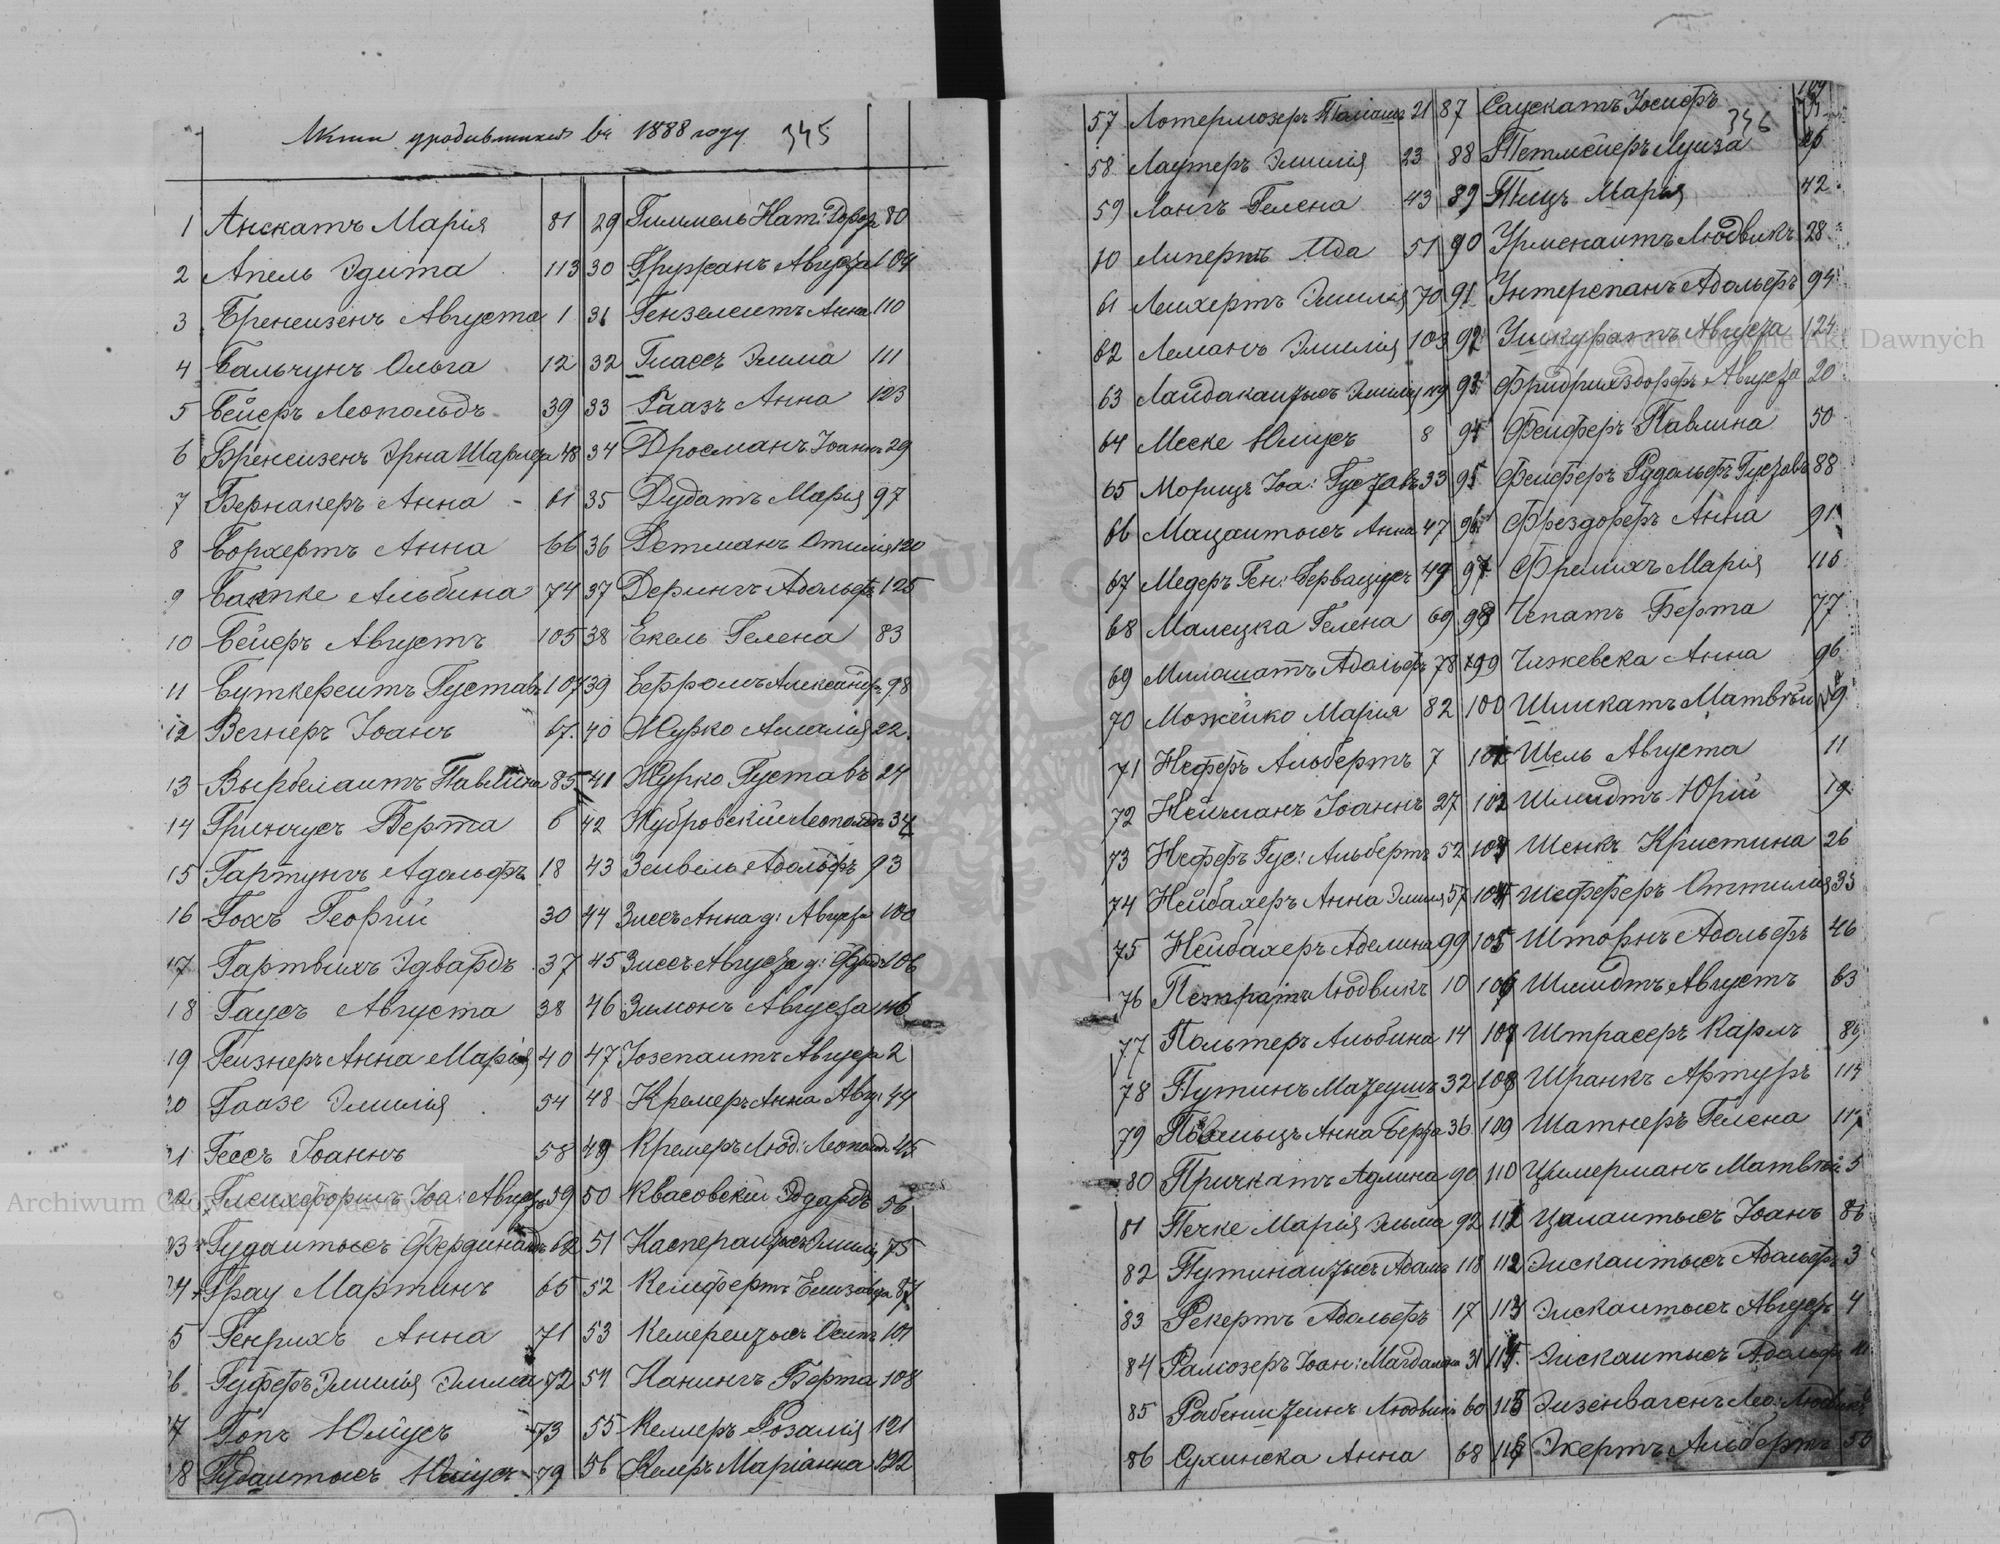 Акты уродившихся въ 1888 году 345
1 Анскатъ Марія 81
2 Апель Эдита 113
3 Бренеизенъ Августа 1
4 Бальчунъ Ольга 12
5 Бейеръ Леопольдъ 39
6 Бренеизенъ Эрна Шарлота 48
7 Бернакеръ Анна 61
8 Борхертъ Анна 66
9 Бакпке Альбина 74
10 Бейеръ Августъ 105
11 Буткереитъ Густавъ 107
12 Вегнеръ Іоанъ 67
13 Вырбелаитъ Павлина 85
14 Гринчусъ Берта 6
15 Гартунгъ Адольфъ 18
16 Гохъ Георгій 30
17 Гартвихъ Эдвардъ 37
18 Гаусъ Августа 38
19 Геизнеръ Анна Марія 40
20 Гаазе Эмилія 54
21 Гессъ Іоаннъ 58
22 Глеихфоршъ Іоа: Августъ 59
23 Гудаитысъ Фердинандъ 62
24 Грау Мартинъ 65
25 Генрихъ Анна 71
26 Гуферъ Эмилія Эмма 72
27 Гопъ Юлиусъ 73
28 Гудаитысъ Юлиусъ 79
29 Гиммель Нат: Доротея 80
30 Гружанъ Августа 104
31 Гензелеитъ Анна 110
32 Гиассъ Эмма 111
33 Гаазъ Анна 123
34 Дросманъ Іоаннъ 29
35 Дудатъ Марія 97
36 Детманъ Отилія 120
37 Дерингъ Адольфъ 125
38 Екель Гелена 83
39 Ефромъ Александръ 98
40 Журко Амалія 22
41 Журко Густавъ 24
42 Жубровскій Леопольдъ 34
43 Зеивель Адольфъ 93
44 Зиссъ Анна д: Августа 100
45 Зиссъ Августа д: Фрид 106
46 Зимонъ Августа 116
47 Іозепаитъ Августъ 2
48 Кремеръ Анна Авгу: 44
49 Кремеръ Люд: Леопольдъ 45
50 Квасовскій Эдуардъ 56
51 Касператысъ Эмилія 75
52 Кемфертъ Елизавета 87
53 Кемереизысъ Осипъ 101
54 Канингъ Берта 108
55 Келлеръ Розалія 121
56 Келеръ Маріанна 122
57 Лотермозеръ Талиашъ 21
58 Лаутеръ Эмилія 23
59 Лангъ Гелена 43
60 Липертъ Ида 51
61 Леихертъ Эмилія 70
62 Леманъ Эмилія 103
63 Лайдакаизысъ Эмилія 119
64 Меске Юлиусъ 8
65 Морицъ Іоа: Густавъ 33
66 Мацаитысъ Анна 47
67 Медеръ Ген: Гервацусъ 49
68 Малецка Гелена 69
69 Милашатъ Адольфъ 78
70 Можейко Марія 82
71 Неферъ Альбертъ 7
72 Нейманъ Іоаннъ 27
73 Неферъ Гус: Альбертъ 52
74 Нейбахеръ Анна Эмилія 57
75 Нейбахеръ Аделина 99
76 Пежратъ Людвикъ 10
77 Польтеръ Альбина 14
78 Путинъ Матеушъ 32
79 Повилыцъ Анна Берта 36
80 Причкатъ Адлина 90
81 Печке Марія Эльма 92
82 Путинаизысъ Адамъ 118
83 Рекертъ Адольфъ 17
84 Рамозеръ Іоан: Магдалена 31
85 Рабенштеинъ Людвикъ 60
86 Сухинска Анна 68
87 Саускатъ Іосифъ
346
88 Тетмейеръ Луиза 86
89 Тицъ Марія 42
90 Урменаитъ Людвикъ 28
91 Унтерспанъ Адольфъ 94
92 Ушкуратъ Августа 124
93 Фридрихздорфъ Августа 20
94 Феиферъ Павлина 50
95 Феиферъ Рудольфъ Густавъ 88
96 Фрездорфъ Анна 91
97 Фрелихъ Марія 115
98 Чепатъ Берта 77
99 Чижевска Анна 96
100 Шимкатъ Матвѣй 9
101 Шель Августа 11
102 Шмидтъ Юрій 19
103 Шенкъ Кристина 26
104 Шефферъ Оттилія 35
105 Шторнъ Адольфъ 46
106 Шмидтъ Августъ 63
107 Штрасеръ Карлъ 89
108 Шранкъ Артуръ 114
109 Шатнеръ Гелена 117
110 Цимерманъ Матвѣй 5
111 Цалаитысъ Іоанъ 86
112 Эискаитысъ Адольфъ 3
113 Эискаитысъ Августъ 4
114 Эискаитысъ Адольфъ
115 Эизенвагенъ Лео: Людвикъ
116 Экертъ Альбертъ 55
Archiwum Główne Akt Dawnych
Archiwum Główne Akt Dawnych